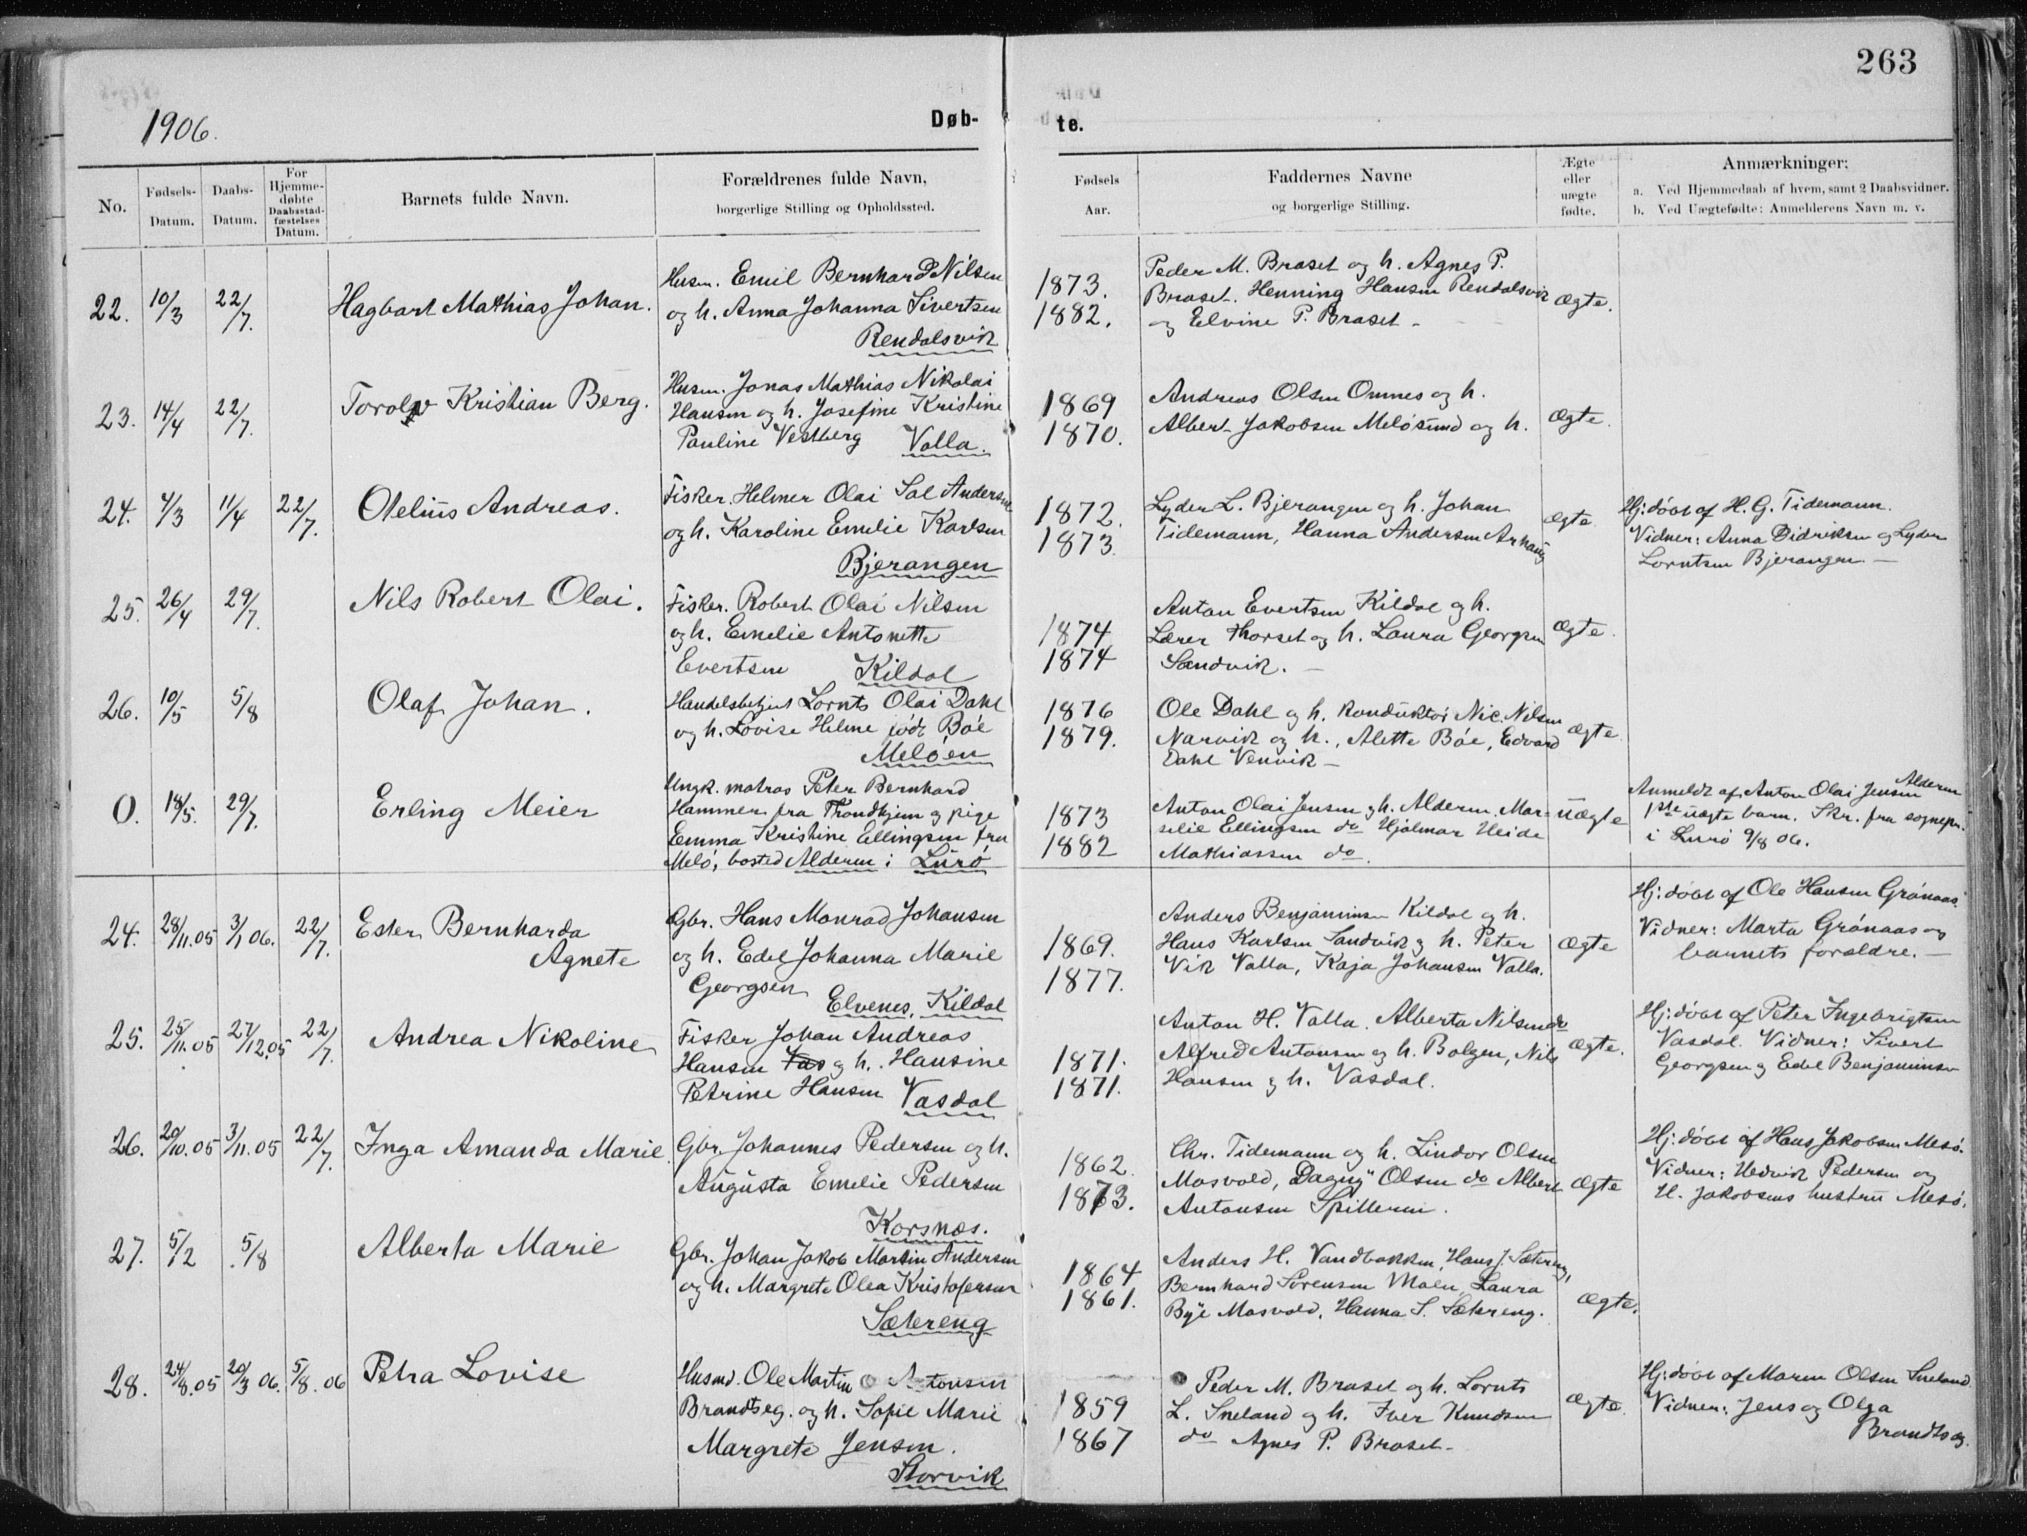 263
1906.
Døb-
te.
No.
Fødsels-
Datum.
Daabs-
Datum.
For
Hjemme-
døbte
Daabsstad-
fæstelses
Datum.
Barnets fulde Navn.
Forældrenes fulde Navn,
borgerlige Stilling og Opholdssted.
Fødsels
Aar.
Faddernes Navne
og borgerlige Stilling.
Ægte
eller
uægte
fødte.
Anmærkninger:
a. Ved Hjemmedaab af hvem, samt 2 Daabsvidner.
b. Ved Uægtefødte: Anmelderens Navn m. v.
22. 10/3 22/7. Hagbart Mathias Johan.
Husm. Emil Bernhard Nilsen
og h. Anna Johanna Sivertsen
Rendalsvik
1873.
1882.
Peder M. Braset og h. Agnes P.
Braset. Henning Hansen Rendalsvik
og Elvine P. Braset -
Ægte.
23. 14/4 22/7. Torolv Kristian Berg.
Husm. Jonas Mathias Nikolai
Hansen og h. Josefine Kristine
Pauline Vestberg Valla.
1869
1870.
Andreas Olsen Omnes og h.
Albert Jakobsen Meløsund og h.
Ægte.
24. 4/3 11/4 22/7. Otelius Andreas.
Fisker. Helmer Olai Sal Andersen
og h. Karoline Emelie Karlsen
Bjerangen
1872.
1873.
Lyder L. Bjerangen og h. Johan
Tidemann, Hanna Andersen Arhaug
Ægte
Hj: døbt af H. G. Tidemann.
Vidner: Anna Didriksen og Lyder
Lorntsen Bjerangen. —
25. 26/4 29/7. Nils Robert Olai.
Fisker. Robert Olai Nilsen
og h. Emelie Antonette
Evertsen Kildal
1874
1874
Anton Evertsen Kildal og h.
Lærer Thorset og h. Laura Georgsen
Sandvik. —
Ægte.
26. 10/5 5/8 Olaf Johan.
Handelsbetjent Lornts Olai Dahl
og h. Lovise Helene født Bøe
Meløen
1876
1879.
Ole Dahl og h. Konduktør Nic. Nilsen
Narvik og h., Alette Bøe, Edvard
Dahl Venvik —
Ægte.
0. 18/5. 29/7. Erling Meier
Ungk. matros Peter Bernhard
Hammer fra Trondhjem og pige
Emma Kristine Ellingsen fra
Melø, bosted Alderen i Lurø
1873
1882
Anton Olai Jensen og h. Alderen. Mar-
selie Ellingsen do Hjalmar Heide
Mathiassen do.
Uægte
Anmeldt af Anton Olai Jensen Alderen
1ste uægte barn. Skr. fra sognepr.
i Lurø 9/8 06.
24. 28/11.05 3/1 06. 22/7. Ester Bernharda
Agnete
Gbr. Hans Monrad Johansen
og h. Edel Johanna Marie
Georgsen
Elvenes, Kildal
1869.
1877.
Anders Benjaminsen Kildal og h.
Hans Karlsen Sandvik og h. Peter
Vik Valla, Kaja Johansen Valla.
Ægte
Hj: døbt af Ole Hansen Grønaas.
Vidner: Marta Grønaas og
barnets forældre. —
25. 25/11.05 27/12.05 22/7. Andrea Nikoline
Fisker Johan Andreas
Hansen Vas og h. Hansine
Petrine Hansen Vasdal
1871.
1871.
Anton H. Valla. Alberta Nilsen do
Alfred Antonsen og h. Bolgen, Nils
Hansen og h. Vasdal.
Ægte.
Hj: døbt af Peter Ingebrigtsen
Vasdal. Vidner: Sivert
Georgsen og Edel Benjaminsen
26. 20/10.05 3/11.05 22/7. Inga Amanda Marie.
Gbr. Johannes Pedersen og h.
Augusta Emelie Pedersen
Korsnes.
1862.
1863.
Chr. Tidemann og h. Lindor Olsen
Masvold, Dagny Olsen do Albert
Antonsen Spilleren.
Ægte
Hj: døbt af Hans Jakobsen Mesø.
Vidner: Hedvik Pedersen og
H. Jakobsens hustru Mesø.
27. 5/2 5/8 Alberta Marie
Gbr. Johan Jakob Martin Andersen
og h. Margrete Olea Kristofersen
Sætereng
1864
1861.
Anders H. Vandbakken, Hans J. Sætereng,
Bernhard Sørensen Moen, Laura
Bye Masvold, Hanna S. Sætereng.
Ægte.
28. 24/8.05 20/3 06. 5/8. 06 Petra Lovise
Husmd. Ole Martin Antonsen
Brandtseg. og h. Sofie Marie
Margrete Jensen.
Storvik
1859
1867
Peder M. Braset og h. Lornts
L. Sneland og h. Iver Knudsen
do Agnes P. Braset -
Ægte
Hj: døbt af Maren Olsen Sneland
Vidner: Jens og Olga
Brandtseg.